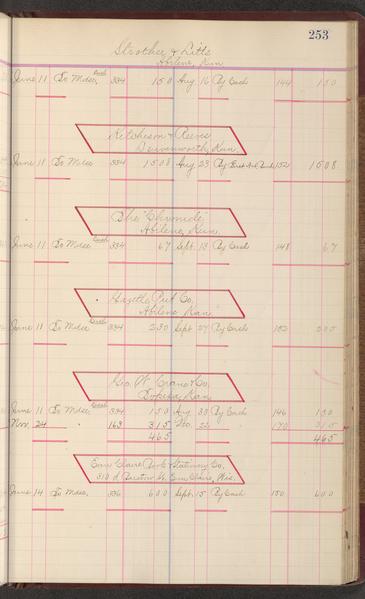 253
Strother & Litts
Abilene, Kan.
June 11 To Mdse. Cash 334 150 Aug 16 By Cash 144 150
Ketcheson & Reeves
Leavenworth, Kan.
June 11 To Mdse 334 1508 Aug 23 By 152 1508
The "Chronicle"
Abilene, Kan.
June 11 To Mdse Cash 334 67 Sept. 13 By Cash 148 67
Gazette Pub Co.
Abilene Kan.
June 11 To Mdse Cash 334 230 Sept 27 By Cash 152 230
Geo. W. Crane & Co.
Topeka, Kan.
June 11 To Mdse. Cash 334 150 Aug 30 By Cash 146 150
Nov. 24 163 315 Dec. 22 170 315
465 465
Eau Claire Book & Stationery Co.
310 S. Barstow St. Eau Claire, Wis.
June 14 To Mdse. 336 600 Sept. 15 By Cash 150 600